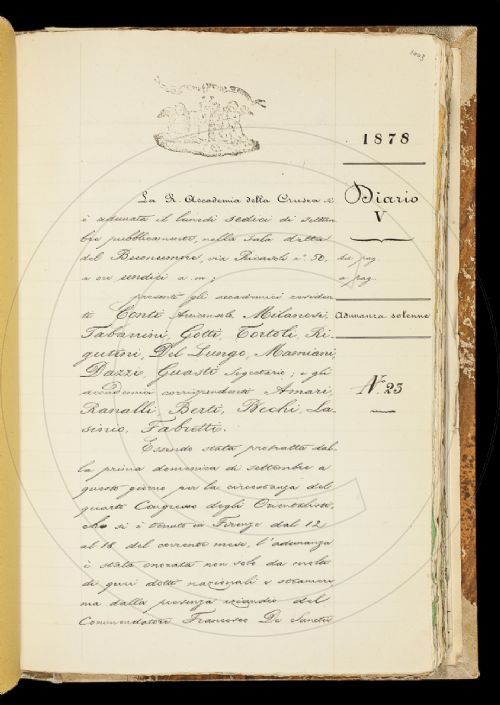 1878
Diario
V
da pag.
a pag.
Adunanza solenne
N.º 23
La R. Accademia della Crusca si
è adunata il lunedì sedici di settem
bre pubblicamente, nella Sala detta
del Buonumore, via Ricasoli n.º 50,
a ore undici a. m.;
presenti gli accademici residen
ti Conti Arciconsolo, Milanesi,
Tabarrini, Gotti, Tortoli, Ri-
gutini, Del Lungo, Mamiani,
Dazzi, Guasti Segretario; e gli
accademici corrispondenti Amari,
Ranalli, Berti, Bechi, La-
sinio, Fabretti.
Essendo stata protratta dal-
la prima domenica di settembre a
questo giorno per la circostanza del
quarto Congresso degli Orientalisti,
che si è tenuto in Firenze dal 12
al 18 del corrente mese, l'adunanza
è stata onorata non solo da molti
di quei dotti nazionali e stranieri
ma dalla presenza eziandio del
Commendatore Francesco De Sanctis